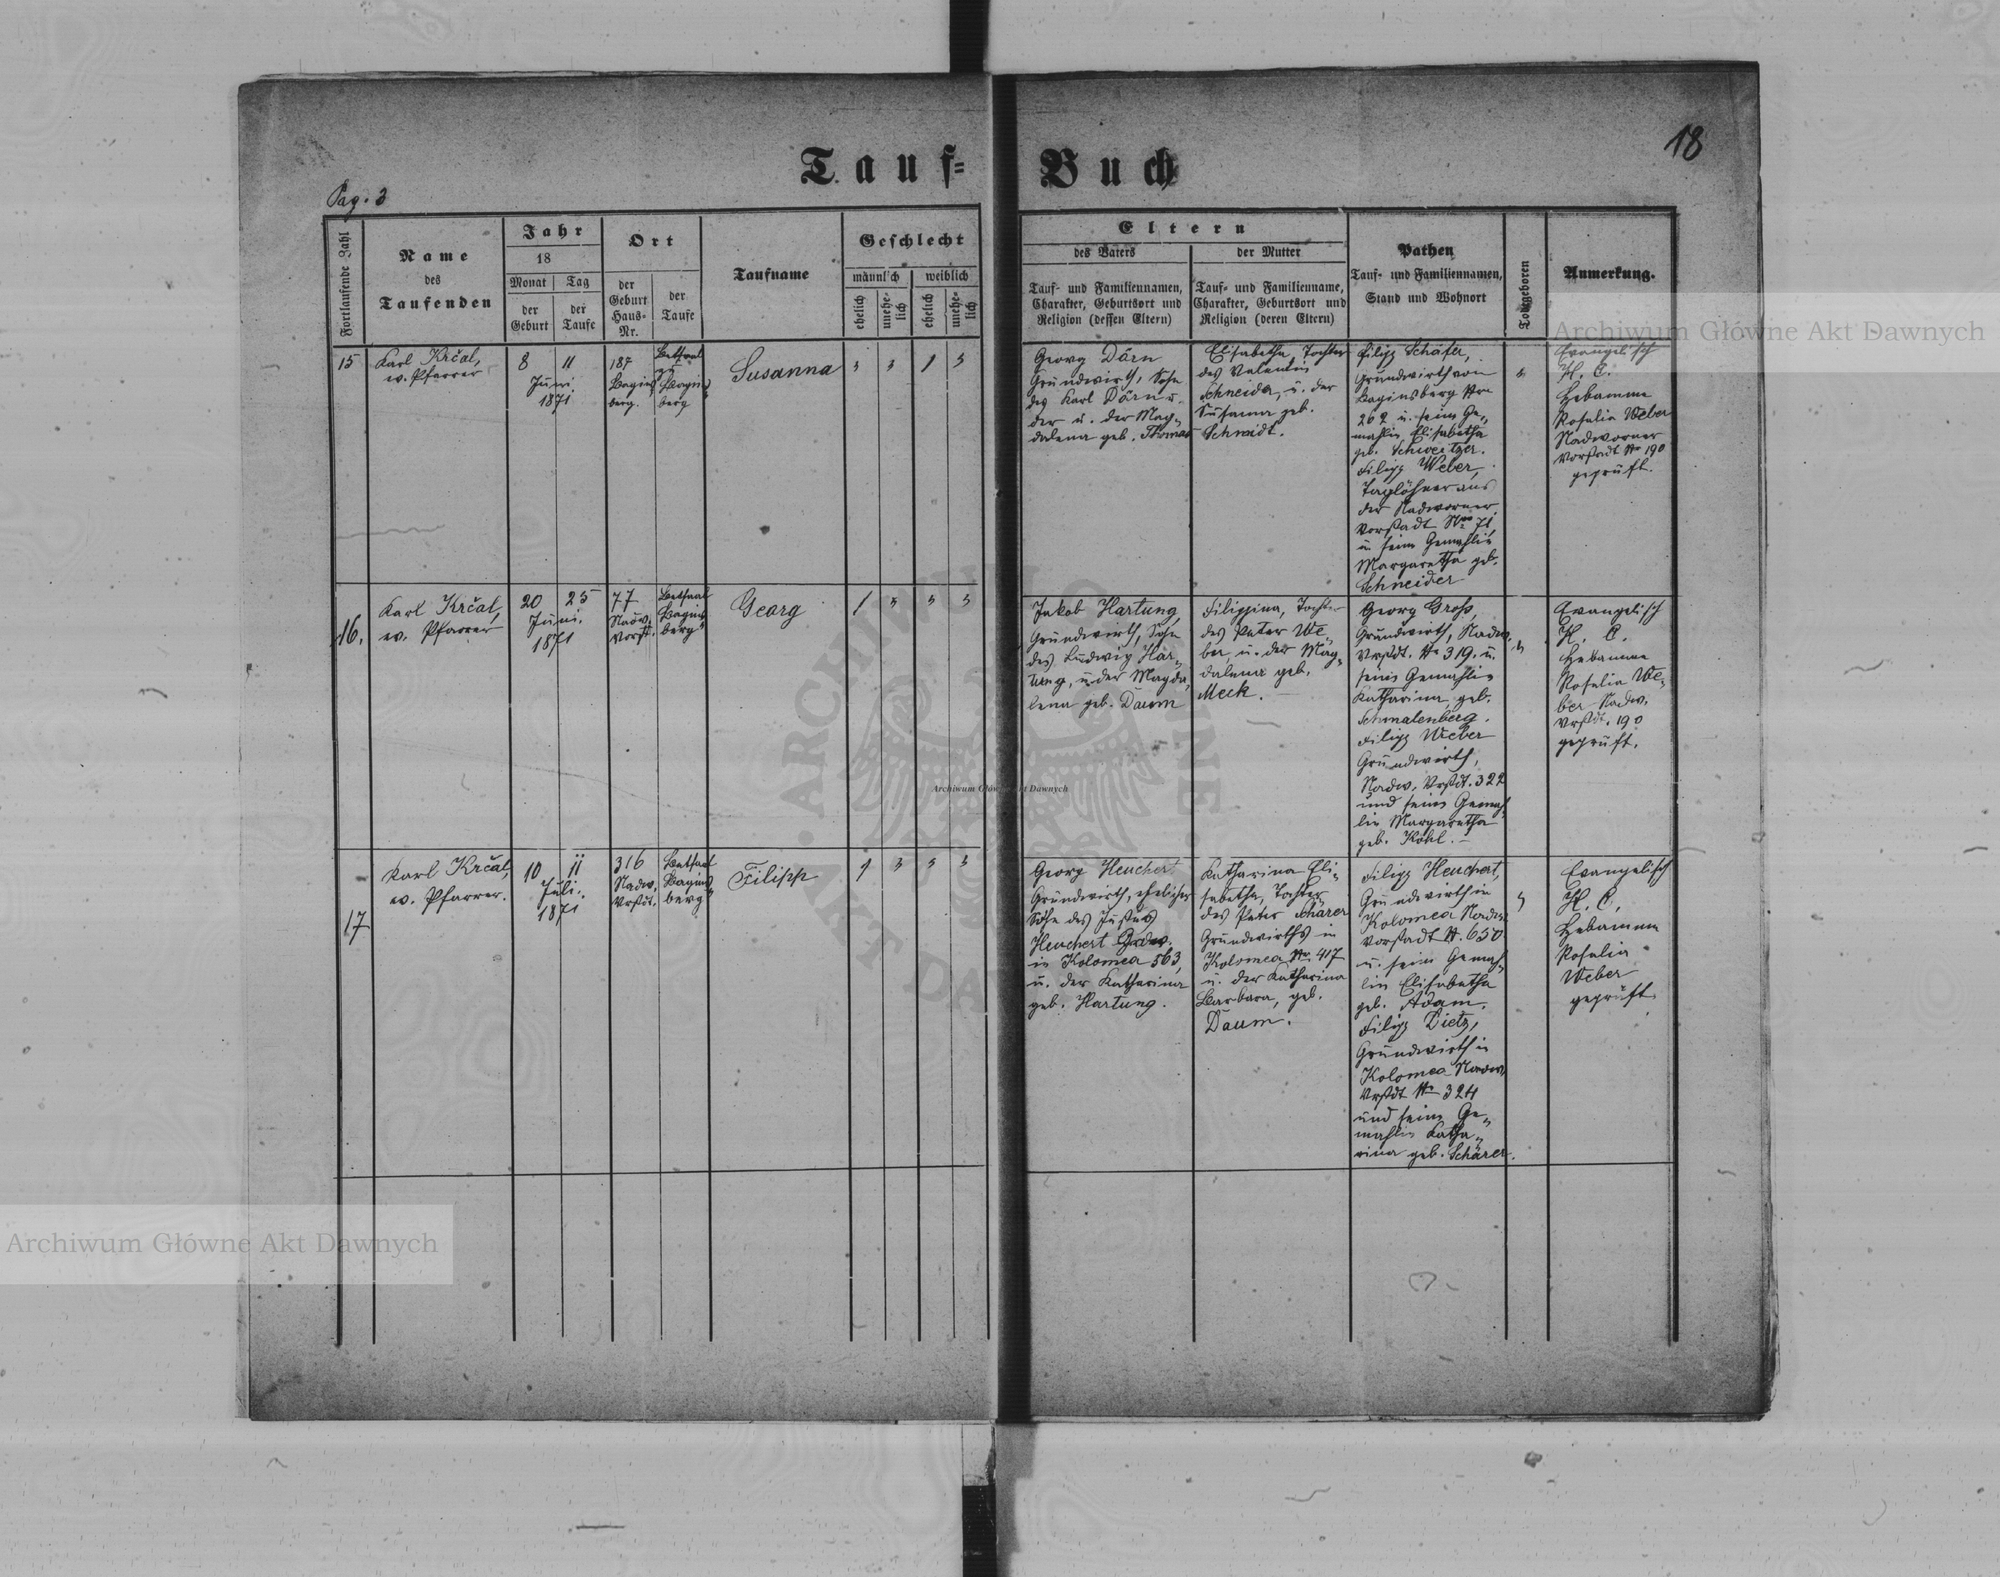 18
Tauf= Buch
Pag. 3
Fortlaufende Zahl
Name
des
Taufenden
Jahr
18
Monat Tag
der
Geburt
der
Taufe
Ort
der
Geburt
Haus-
Nr.
der
Taufe
Taufname
Geschlecht
männlich weiblich
ehelich
unehe-
lich
ehelich
unehe-
lich
Eltern
des Vaters
Tauf- und Familiennamen,
Charakter, Geburtsort und
Religion (dessen Eltern)
der Mutter
Tauf- und Familienname,
Charakter, Geburtsort und
Religion (deren Eltern)
Pathen
Tauf- und Familiennamen,
Stand und Wohnort
Todtgeboren
Anmerkung.
15
Karl Krčal,
ev. Pfarrer
8 11
Juni
1871
187
Bagins
berg.
Betsaal
zu
Bagins
berg
Susanna
" " 1 "
Georg Dörn
Grundwirth, Sohn
des Karl Dörn u.
der u. der Mag-
dalena geb. Thomas
Elisabetha, Tochter
des Valentin
Schneider, u. der
Susanna geb.
Schmidt.
Filipp Schäfer,
Grundwirth von
Baginsberg Nro
262 u. seine Ge-
mahlin Elisabetha
geb. Schweitzer.
Filipp Weber,
Taglöhner aus
der Nadworner
Vorstadt Nro 71
u. seine Gemahlin
Margaretha geb.
Schneider
"
Evangelisch
H. C.
Hebamme
Rosalia Weber
Nadworner
Vorstadt Nr 190
geprüft.
16.
Karl Krčal,
ev. Pfarrer
20 25
Juni.
1871
77
Nadw.
Vorst.
Betsaal
Bagins
berg
Georg
1 " " "
Jakob Hartung,
Grundwirth, Sohn
des Ludwig Har-
tung, u. der Magda-
lena geb. Daum
Filippina, Tochter
des Peter We-
ber, u. der Mag-
dalena geb.
Meck.
Georg Groß,
Grundwirth, Nadw.
Vrstdt. Nr 319. u.
seine Gemahlin
Katharina, geb.
Schmalenberg.
Filipp Weber
Grundwirth,
Nadw. Vrstdt. 322
und seine Gemah-
lin Margaretha
geb. Köhl.
"
Evangelisch
H. C.
Hebamme
Rosalia We-
ber Nadw.
Vrstdt. 190
geprüft.
17
Karl Krčal,
ev. Pfarrer.
10 11
Juli.
1871
316
Nadw.
Vrstdt.
Betsaal
Bagins
berg
Filipp
1 " " "
Georg Heuchert
Grundwirth, ehelicher
Sohn des Justus
Heuchert Grdw.
in Kolomea 563,
u. der Katharina
geb. Hartung.
Katharina Eli-
sabetha, Tochter
des Peter Schärer
Grundwirths in
Kolomea Nr. 417
u. der Katharina
Barbara, geb.
Daum.
Filipp Heuchert,
Grundwirth in
Kolomea Nadw.
Vorstadt N. 650
u. seine Gemah-
lin Elisabetha
geb. Adam.
Filipp Dietz,
Grundwirth in
Kolomea Nadw.
Vrstdt Nr 324
und seine Ge-
mahlin Katha-
rina geb. Schärer.
"
Evangelisch
H. C.
Hebamme
Rosalia
Weber
geprüft.
Archiwum Główne Akt Dawnych
Archiwum Główne Akt Dawnych
Archiwum Główne Akt Dawnych
ARCHIWUM GŁÓWNE AKT DAWNYCH